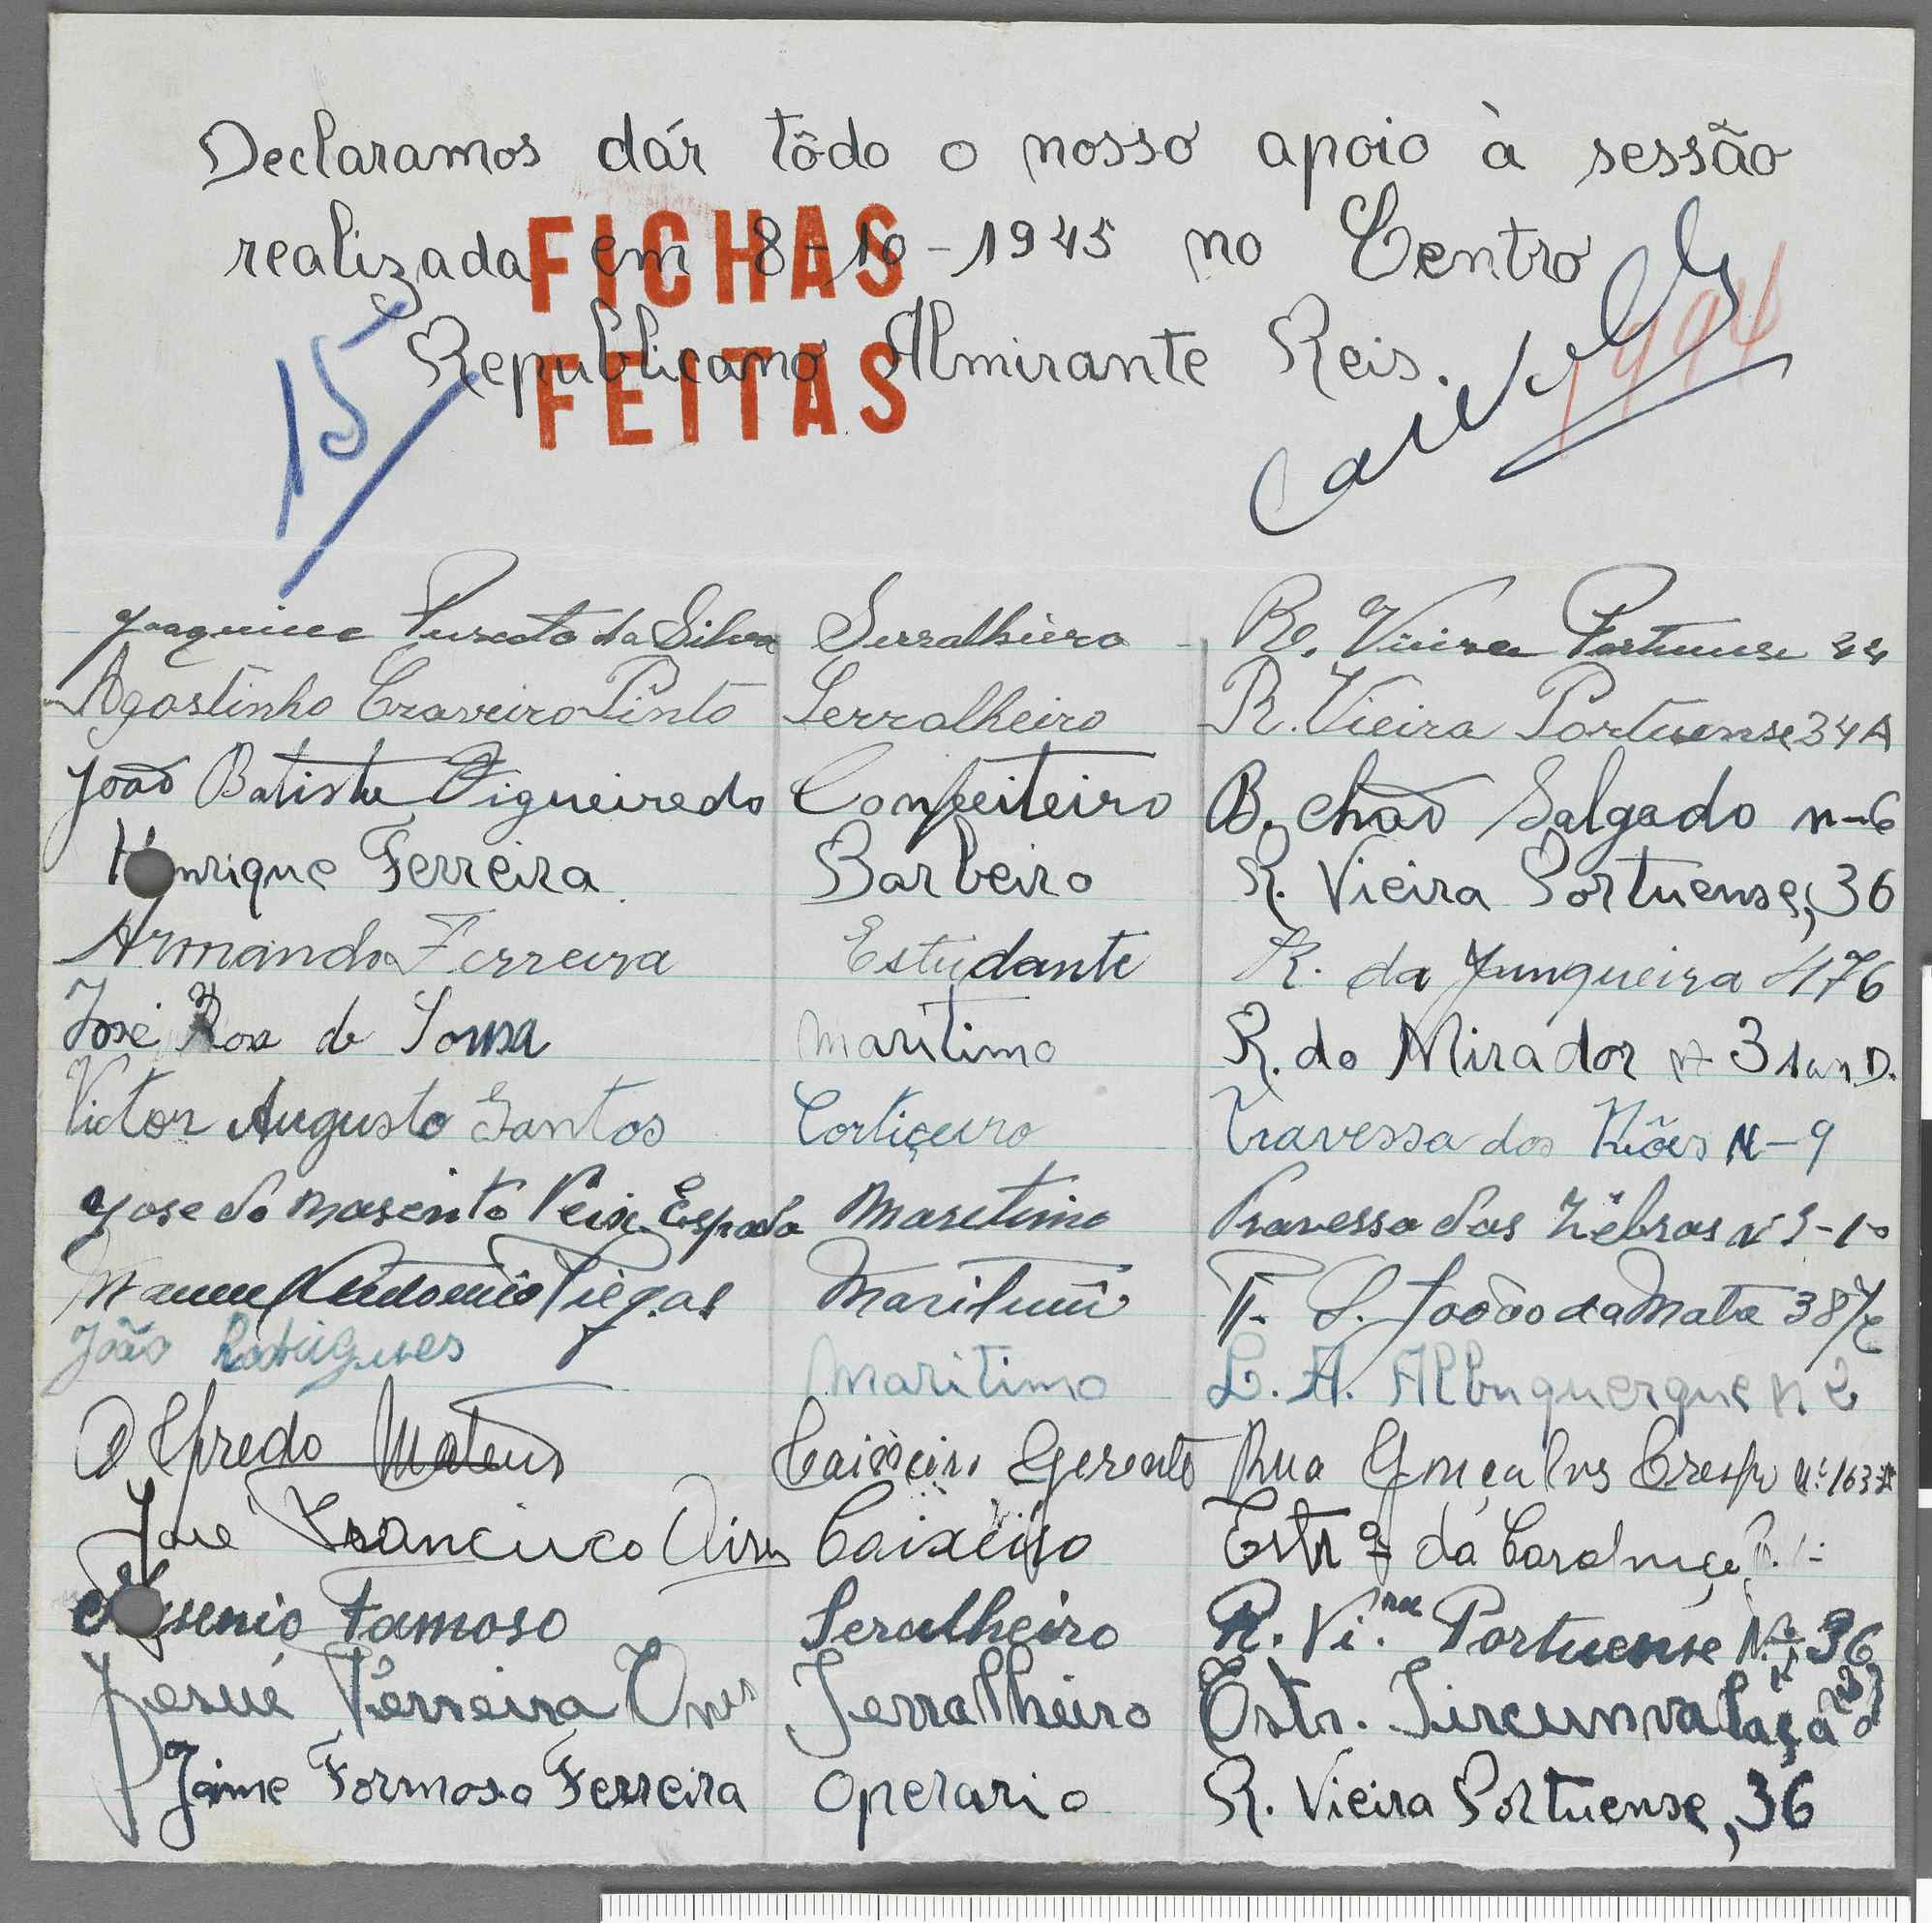 Declaramos dár tôdo o nosso apoio à sessão
realizada em 8-10-1945 no Centro
Republicano Almirante Reis.
FICHAS
FEITAS
15
1994
Joaquim da Silva Serralheiro R. Vieira Portuense 44
Agostinho Craveiro Pinto Serralheiro R. Vieira Portuense 34A
João Batista Figueiredo Confeiteiro B. Chão Salgado n-6
Henrique Ferreira Barbeiro R. Vieira Portuense, 36
Armando Ferreira Estudante R. da Junqueira 476
José Rosa de Sousa maritimo R. do Mirador nº 3
Victor Augusto Santos Cortiçeiro Travessa dos N-9
Jose do Nasento Peix Espada Maritimo Travessa das Zébras
Manuel Antonio Viegas Maritimo T. S. João da Mata 38
João Rodrigues Maritimo L. A. Albuquerque n 2
Alfredo Mateus Caixeiro Gerente Rua Gonçalves Crespo
Jose Francisco Aires Caixeiro Estrª da
senio Famoso Seralheiro R. Viª Portuense Nº 36
Josué Ferreira Serralheiro Estr. Sircunvalação
Jaime Formoso Ferreira Operario R. Vieira Portuense, 36